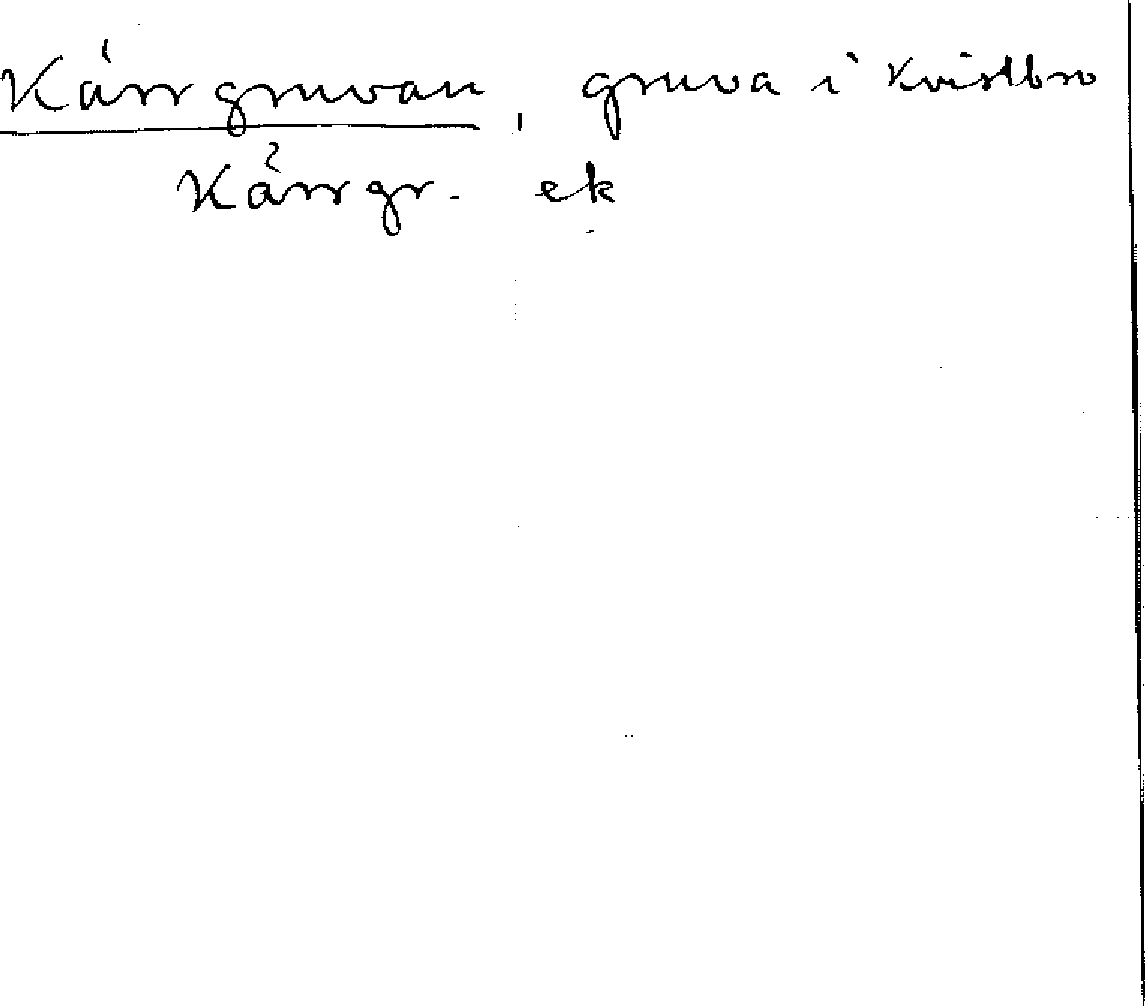 Kärrgruvan, gruva i Kvistbro
Kärrgr. ek